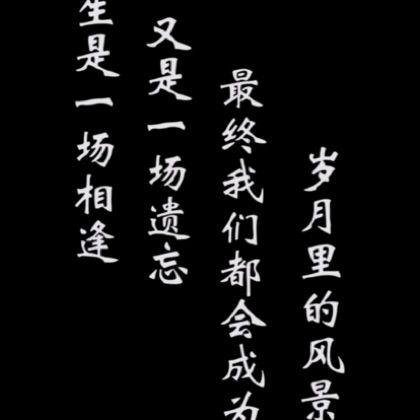 生是一场相逢
又是一场遗忘
最终我们都会成为
岁月里的风景